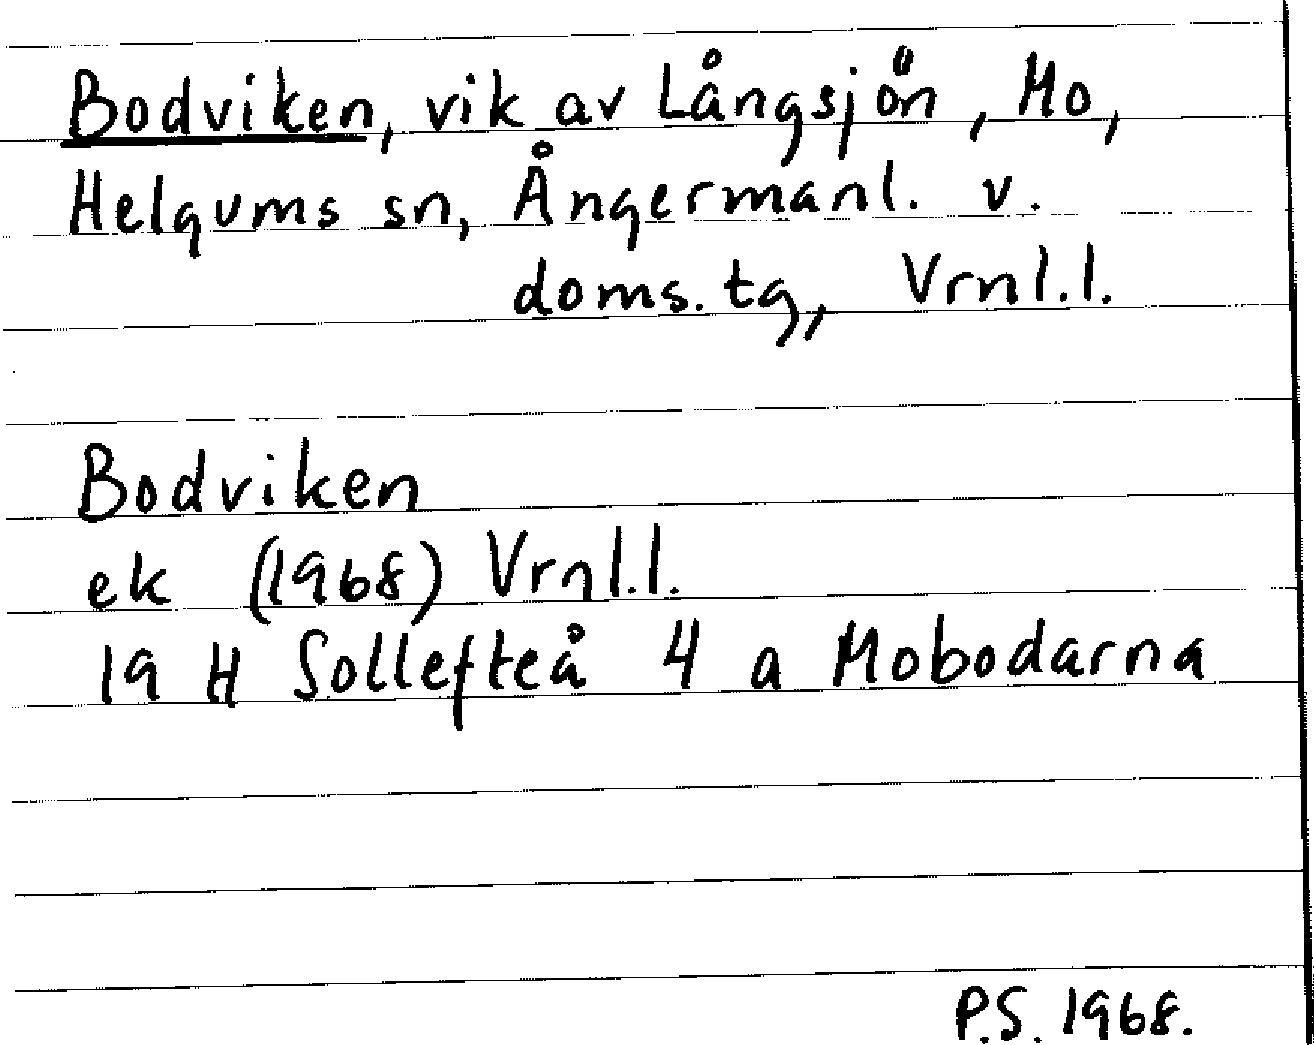 Bodviken, vik av Långsjön, Mo,
Helgums sn, Ångermanl. v.
doms.tg, Vrnl.l.
Bodviken
ek (1968) Vrnl.l.
19 H Sollefteå 4 a Mobodarna
P.S. 1968.